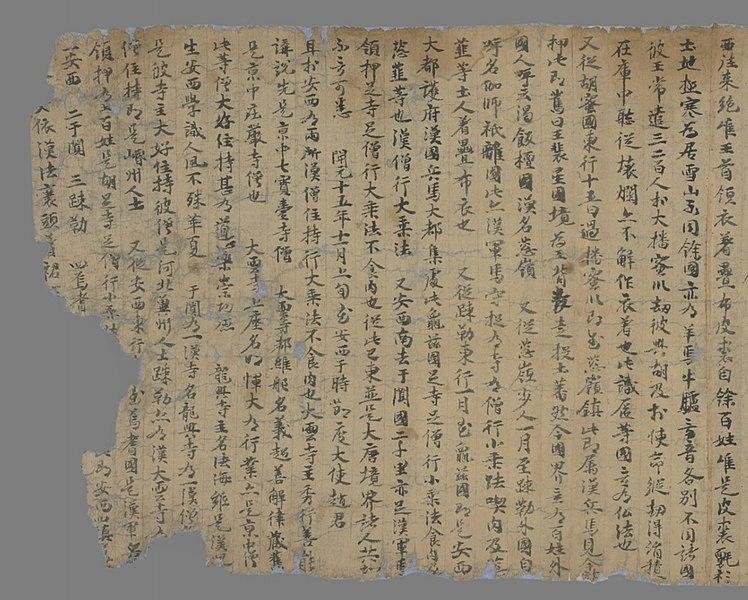 法來絕唯王首領衣著疊布皮裘自餘百姓唯是皮裘氈衫
土地極寒為居雪山不同餘國亦有羊馬牛驢言音各別不同諸國
彼王常遣三二百人於大播蜜川劫彼興胡及於使命縱劫得絹積
在庫中聽從壞爛亦不解作衣著也此識匿等國无有仏法也
又從胡蜜國東行十五日過播蜜川即至葱嶺鎮此即屬漢兵馬見今鎮
押此即舊日王裴星國境為王背叛走投土蕃然今國界无有百姓外
國人呼云渴飯檀國漢名葱嶺 又從葱嶺步入一月至踈勒外國自
呼名伽師祇離國此亦漢軍馬守捉有寺有僧行小乘法喫肉及葱
韮等土人着疊布衣也 又從踈勒東行一月至龜茲國即是安西
大都護府漢國兵馬大都集處此龜茲國足寺足僧行小乘法食肉及
葱韮等也漢僧行大乘法 又安西南去于闐國二千里亦足漢軍馬
領押足寺足僧行大乘法不食肉也從此已東並是大唐境界諸人共知
不言可悉 開元十五年十一月上旬至安西于時節度大使趙君
且於安西有兩所漢僧住持行大乘法不食肉也大雲寺主秀行善能
講說先是京中七寶臺寺僧 大雲寺都維那名義超善解律藏舊
是京中莊嚴寺僧也 大雲寺上座名明惲大有行業亦是京中僧
此等僧大好住持甚有道心樂崇功德 龍興寺主名法海雖是漢兒
生安西學識人風不殊華夏 于闐有一漢寺名龍興寺有一漢僧
是彼寺主大好住持彼僧是河北冀州人士踈勒亦有漢大雲寺
僧住持即是㟭州人士 又從安西東行 至焉耆國是漢軍
領押有王百姓是胡足寺足僧行小乘法
一安西 二于闐 三踈勒 四焉耆
依漢法裹頭著裙